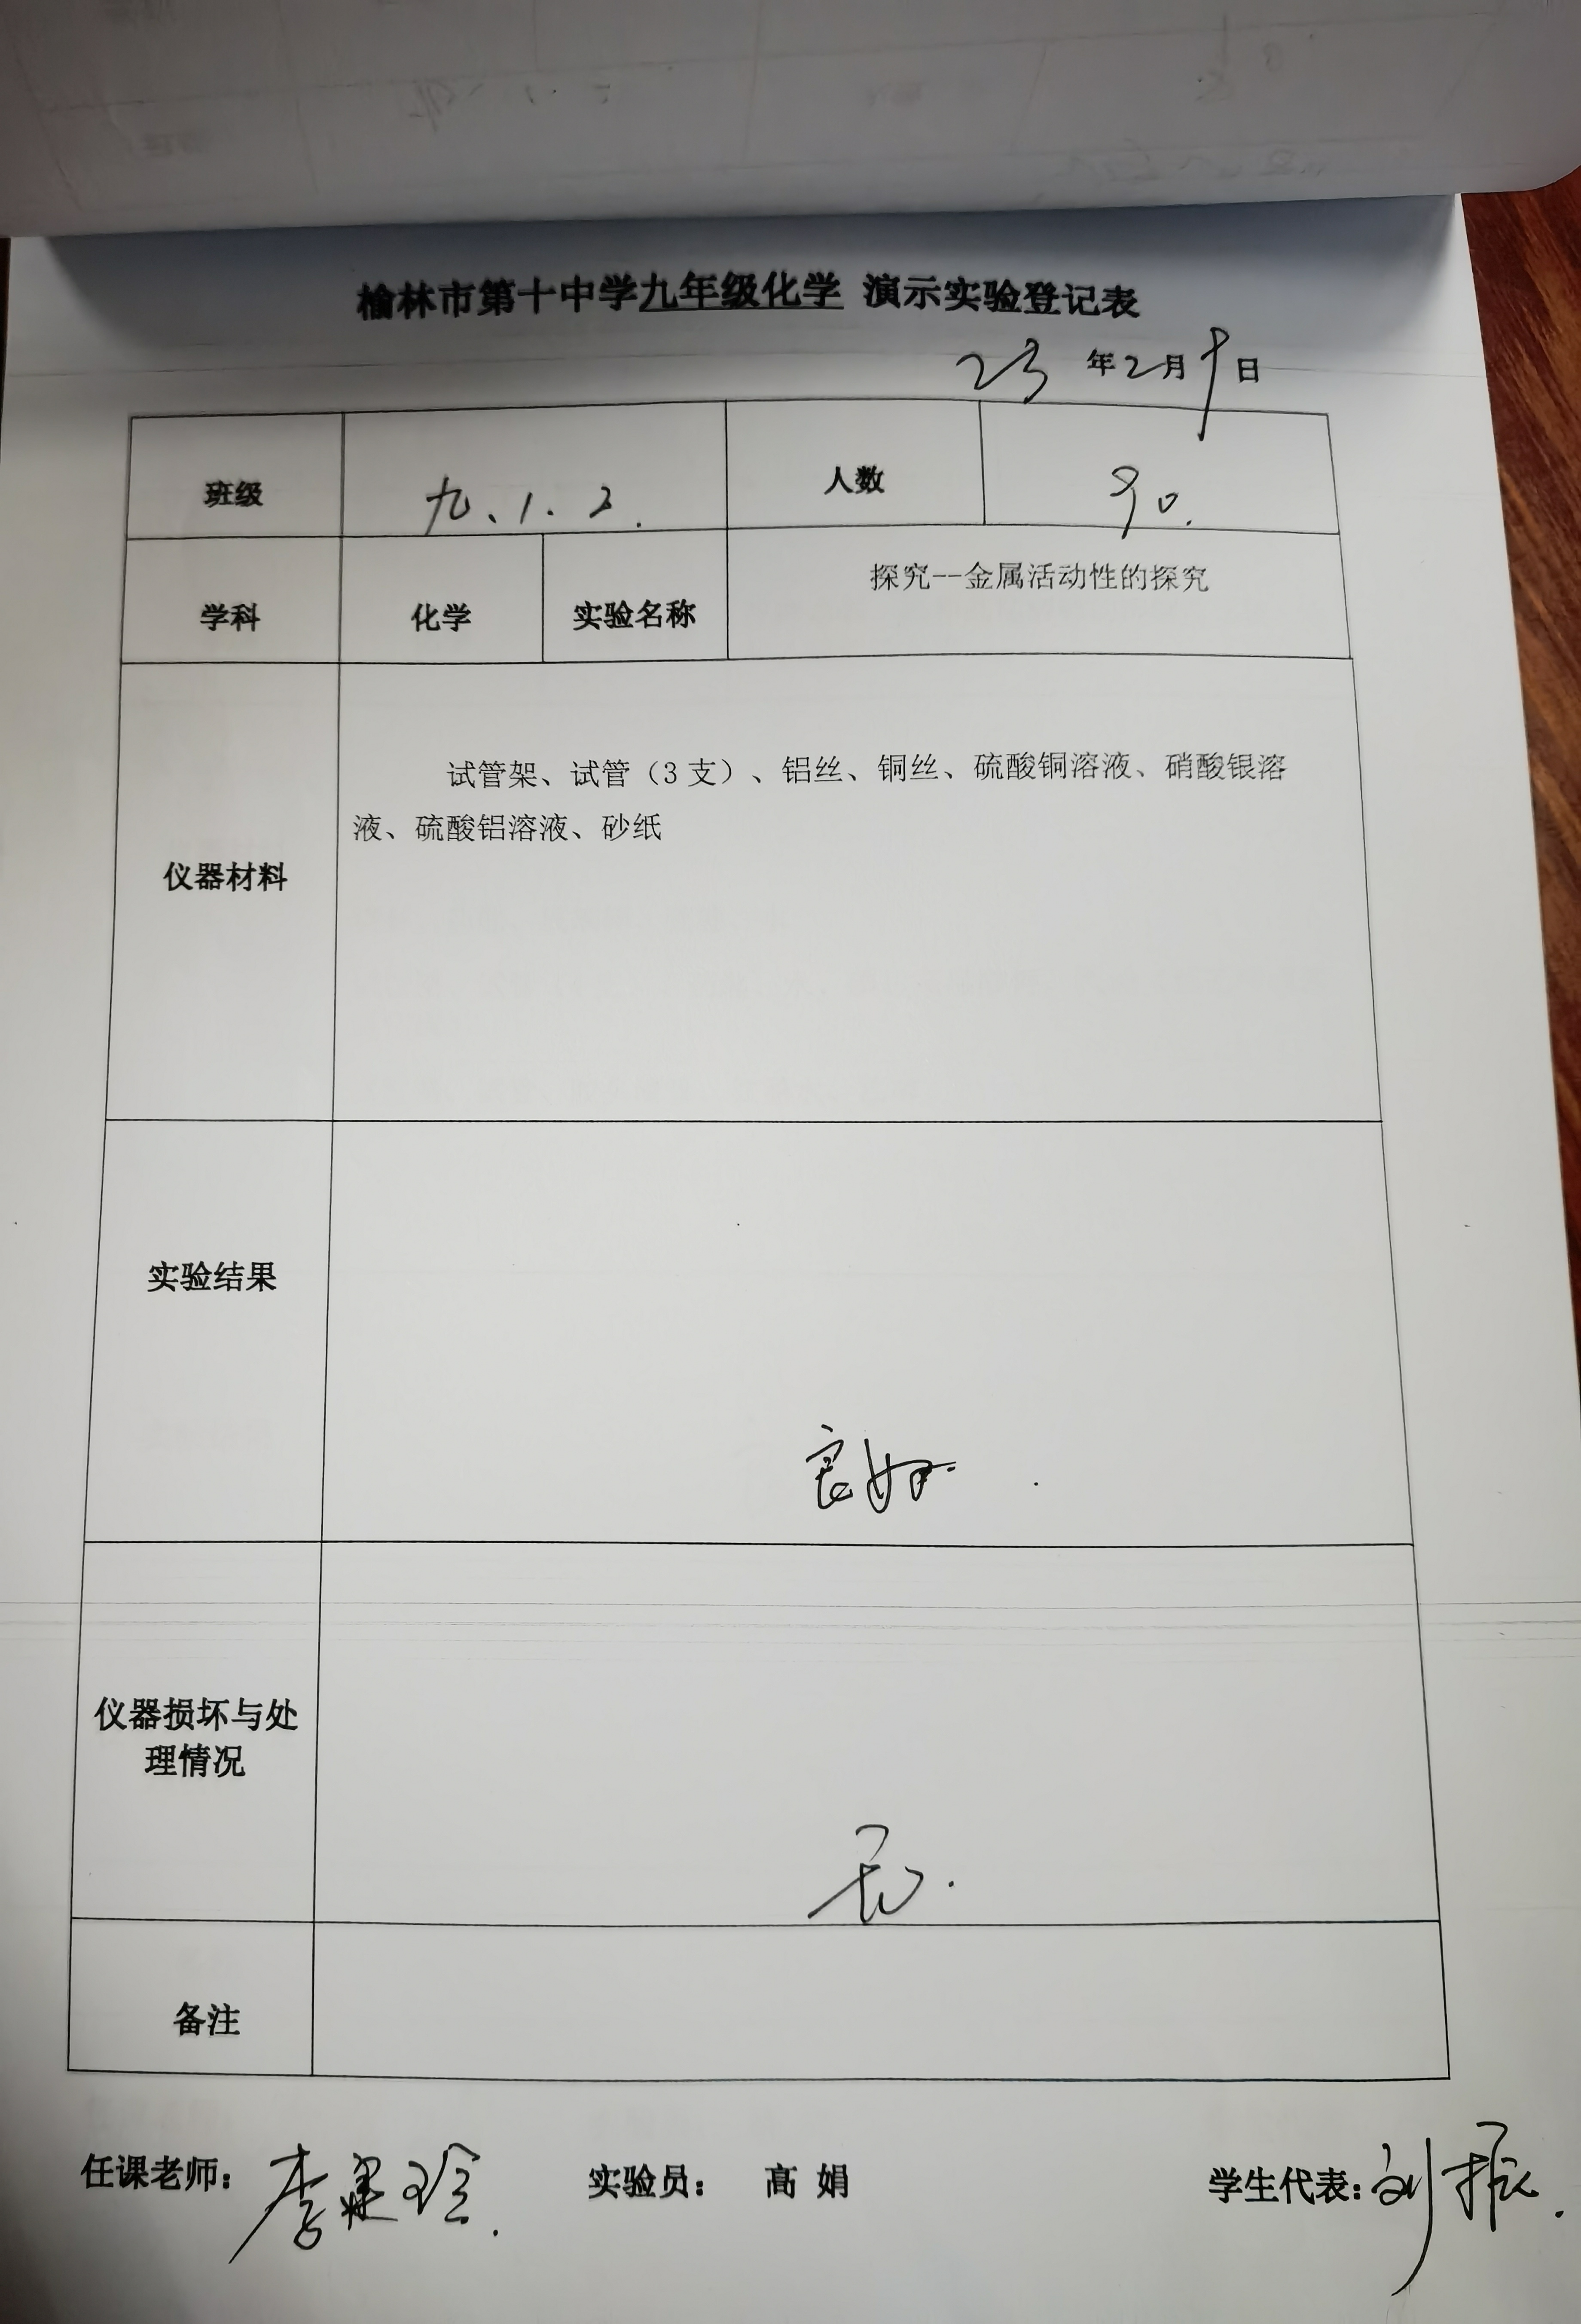 榆林市第十中学九年级化学 演示实验登记表
23 年2月9日
班级 九、1.2. 人数 90.
学科 化学 实验名称 探究--金属活动性的探究
仪器材料
试管架、试管（3支）、铝丝、铜丝、硫酸铜溶液、硝酸银溶
液、硫酸铝溶液、砂纸
实验结果
良好.
仪器损坏与处
理情况
无.
备注
任课老师： 李 实验员： 高 娟 学生代表：刘振.